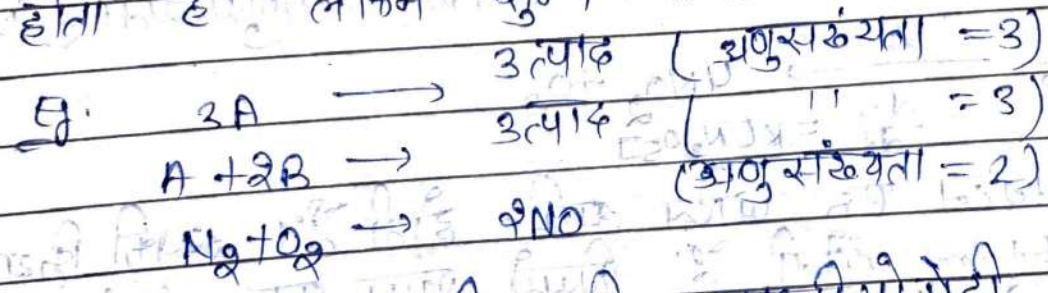 होता है लेकिन
Eg. 3A → उत्पाद (अणुसंख्यता = 3)
A + 2B → उत्पाद ( " = 3)
N2 + O2 → 2NO (अणुसंख्यता = 2)